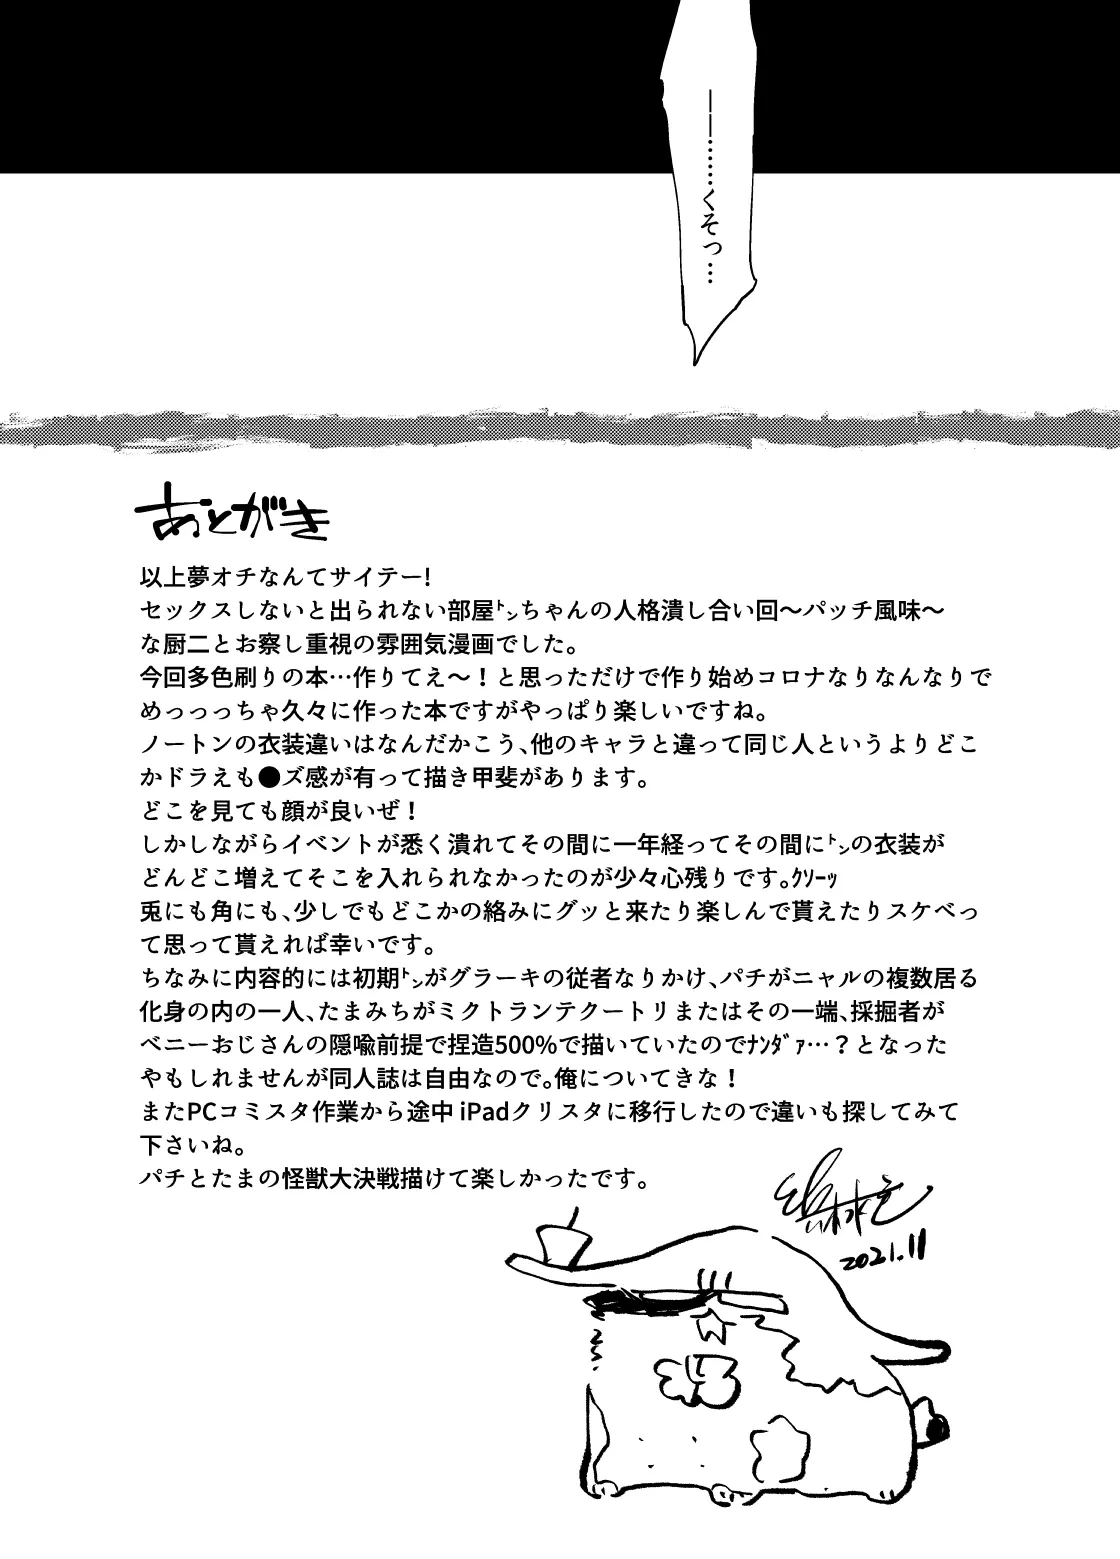 ――……くそっ…
あとがき
以上夢オチなんてサイテー!
セックスしないと出られない部屋㌧ちゃんの人格潰し合い回～パッチ風味～
な厨二とお察し重視の雰囲気漫画でした。
今回多色刷りの本…作りてえ～！と思っただけで作り始めコロナなりなんなりで
めっっっちゃ久々に作った本ですがやっぱり楽しいですね。
ノートンの衣装違いはなんだかこう、他のキャラと違って同じ人というよりどこ
かドラえも●ズ感が有って描き甲斐があります。
どこを見ても顔が良いぜ！
しかしながらイベントが悉く潰れてその間に一年経ってその間に㌧の衣装が
どんどこ増えてそこを入れられなかったのが少々心残りです。ｸｿｰｯ
兎にも角にも、少しでもどこかの絡みにグッと来たり楽しんで貰えたりスケベっ
て思って貰えれば幸いです。
ちなみに内容的には初期㌧がグラーキの従者なりかけ、パチがニャルの複数居る
化身の内の一人、たまみちがミクトランテクートリまたはその一端、採掘者が
ベニーおじさんの隠喩前提で捏造500%で描いていたのでﾅﾝﾀﾞｧ…？となった
やもしれませんが同人誌は自由なので。俺についてきな！
またPCコミスタ作業から途中iPadクリスタに移行したので違いも探してみて
下さいね。
パチとたまの怪獣大決戦描けて楽しかったです。
2021.11